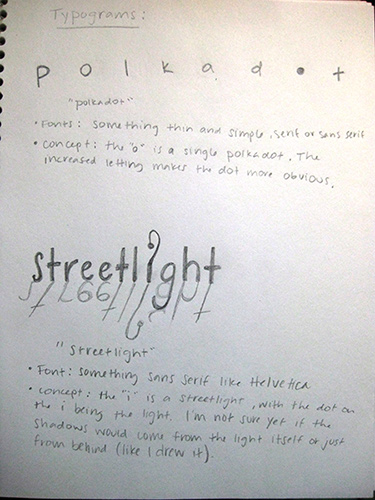 Typograms:
p o l k a d • t
"polkadot"
• Fonts: something thin and simple, serif or sans serif
• Concept: the "o" is a single polkadot. The
increased letting makes the dot more obvious.
streetlight
"streetlight"
• Font: something sans serif like Helvetica
• concept: the "i" is a streetlight, with the dot on
the i being the light. I'm not sure yet if the
shadows would come from the light itself or just
from behind (like I drew it).